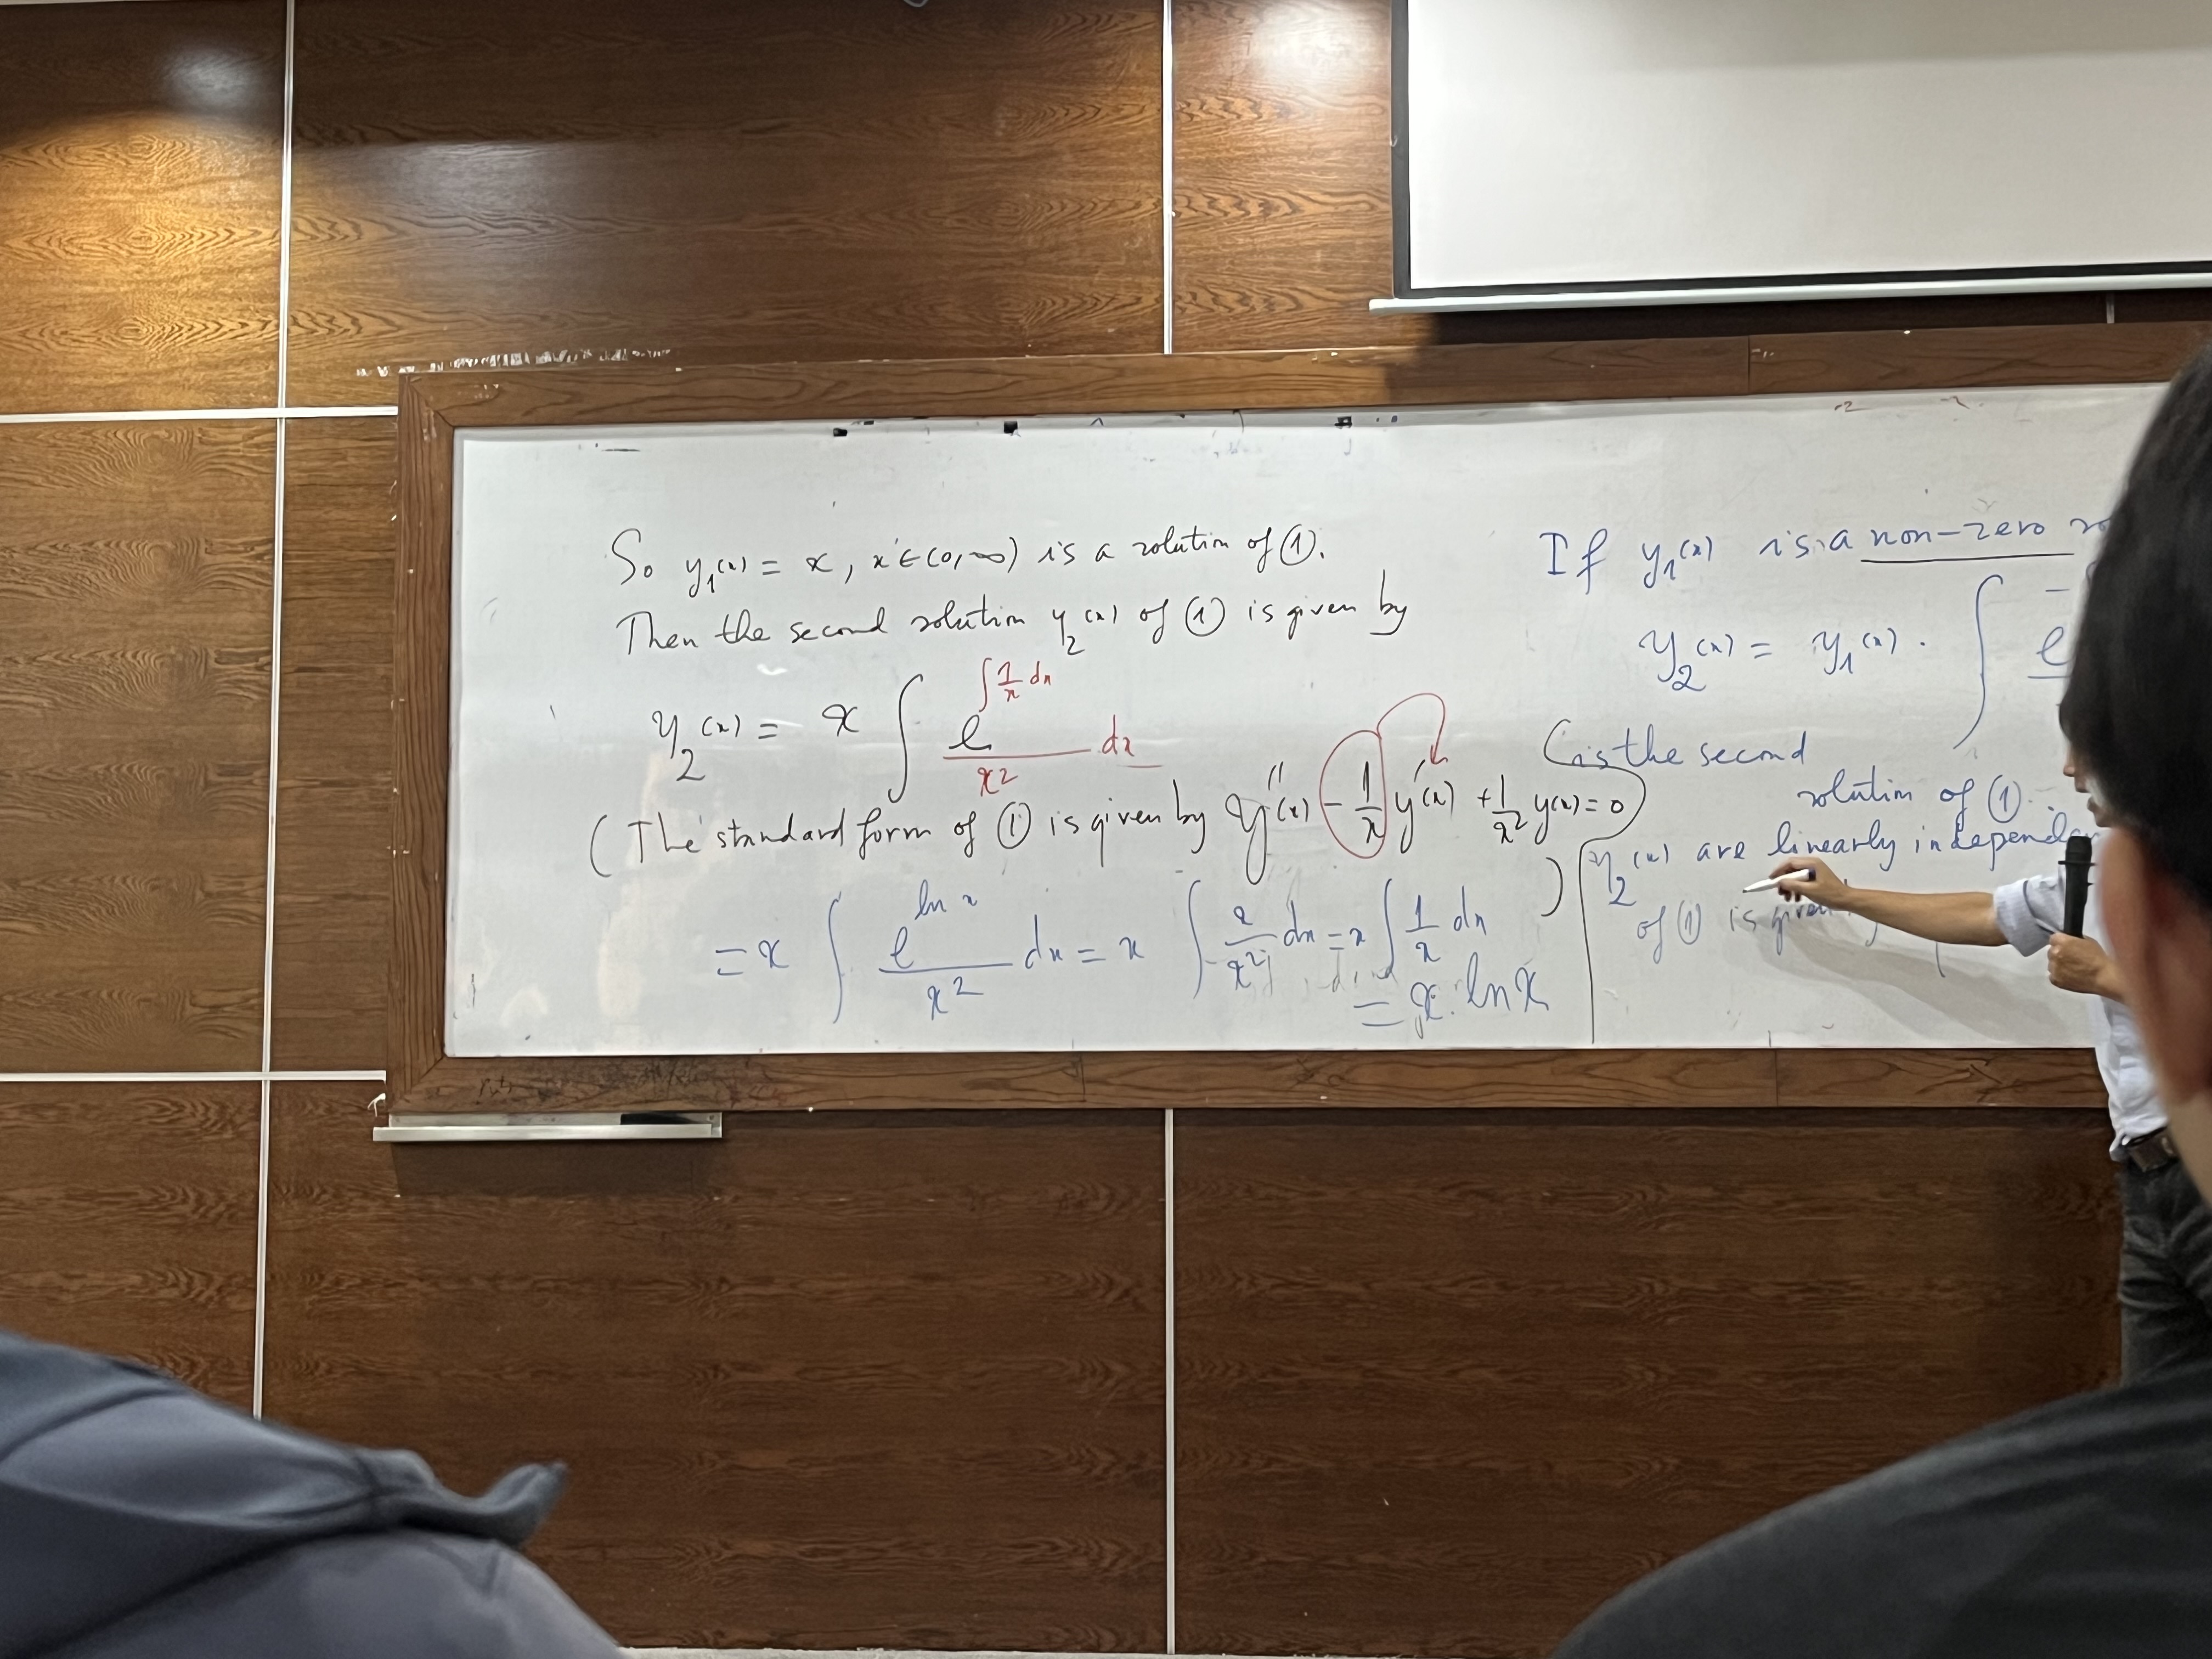 So y₁(x) = x, x ∈ (0, ∞) is a solution of ①.
Then the second solution y₂(x) of ① is given by
y₂(x) = x ∫ e^{∫ 1/x dx} / x² dx
(The standard form of ① is given by y''(x) - 1/x y'(x) + 1/x² y(x) = 0)
= x ∫ e^{ln x} / x² dx = x ∫ x/x² dx = x ∫ 1/x dx
= x. ln x
If y₁(x) is a non-zero
y₂(x) = y₁(x) . ∫ e
is the second
solution of ①.
y₂(x) are linearly
of ① is given